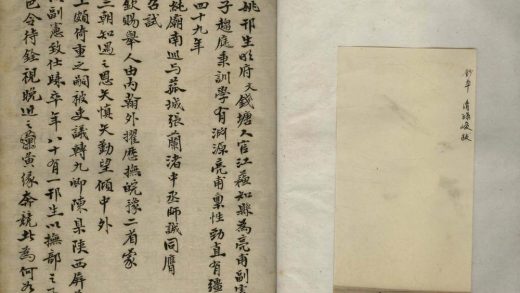 姚邗生明府文錢塘人官江蘇知縣為亮甫副憲
子趨庭秉訓學有淵源亮甫稟性勁直有彊
四十九年
純廟南巡与菰城張蘭渚中丞師誠同膺
召試
欽賜舉人由內翰外擢歷撫皖豫二省蒙
三朝知遇之恩矢慎矢勤望傾中外
上頗倚重之嗣被吏議轉九卿陳臬陝西屏
以副憲致仕歸卒年八十有一邗生以撫部之
已令待銓視晚近之夤緣奔競此為何